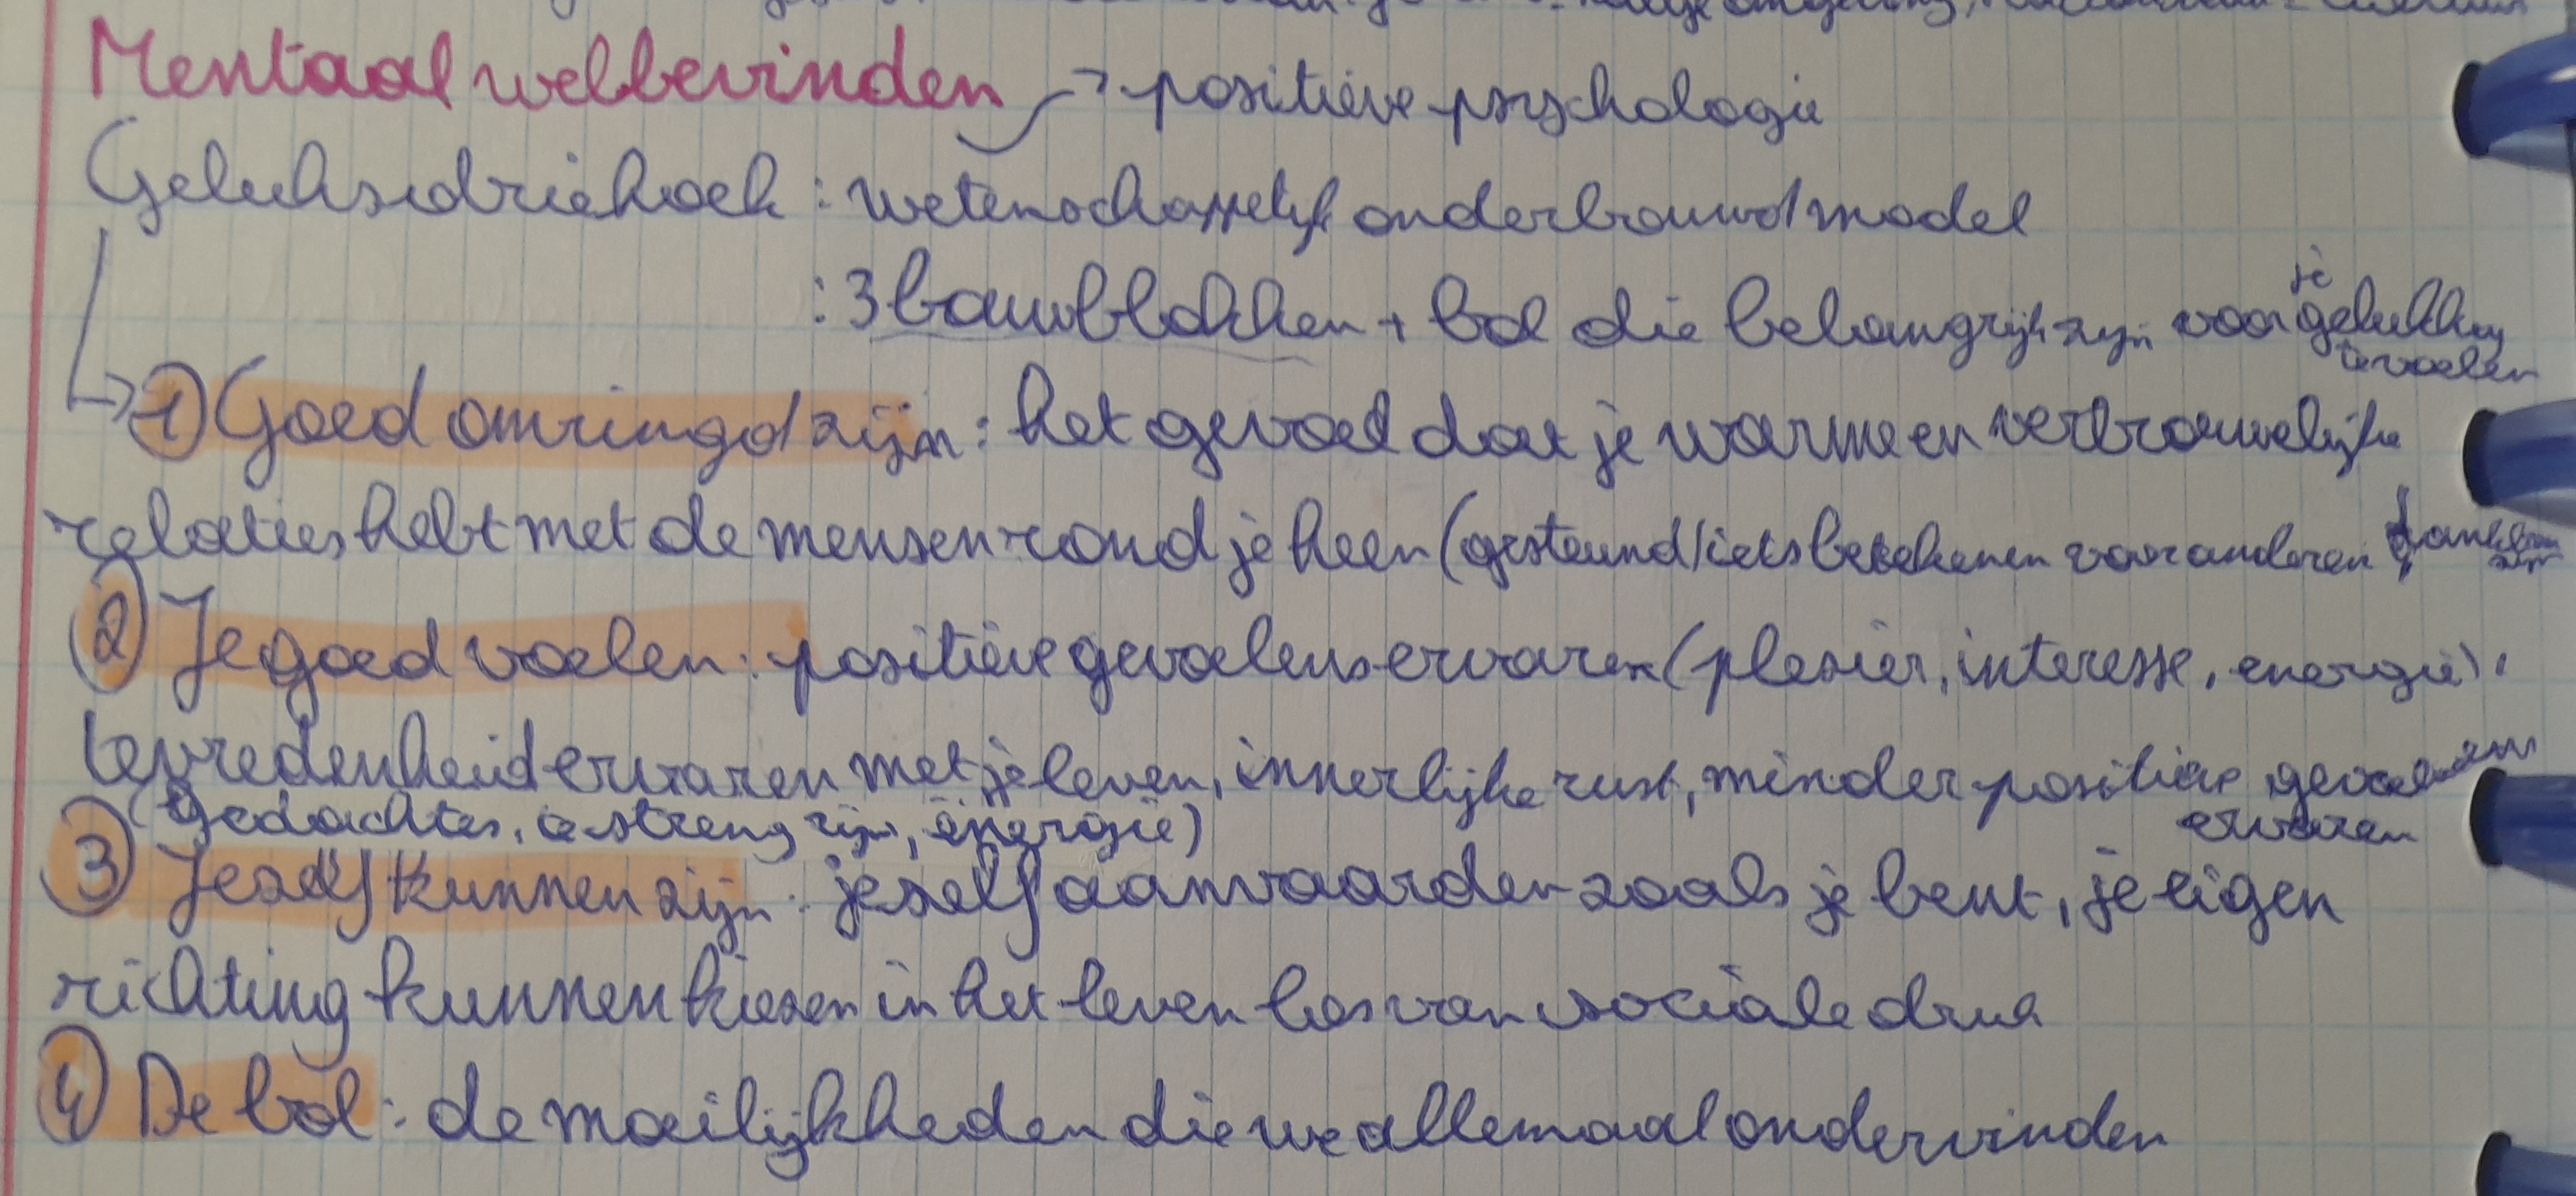 Mentaal welbevinden → positieve psychologie
Geluksdriehoek : wetenschappelijk onderbouwd model
: 3 bouwblokken + bol die belangrijk zijn voor je gelukkig
te voelen
→ 1 Goed omringd zijn : het gevoel dat je warme en vertrouwelijke
relaties hebt met de mensen rond je heen (gesteund/iets betekenen voor anderen
2 Je goed voelen : positieve gevoelens ervaren (plezier, interesse, energie),
tevredenheid ervaren met je leven, innerlijke rust, minder positieve gevoelens
ervaren
(gedachtes, te streng zijn, energie)
3 Jezelf kunnen zijn : jezelf aanvaarden zoals je bent, je eigen
richting kunnen kiezen in het leven los van sociale druk
4 De bol : de moeilijkheden die we allemaal ondervinden